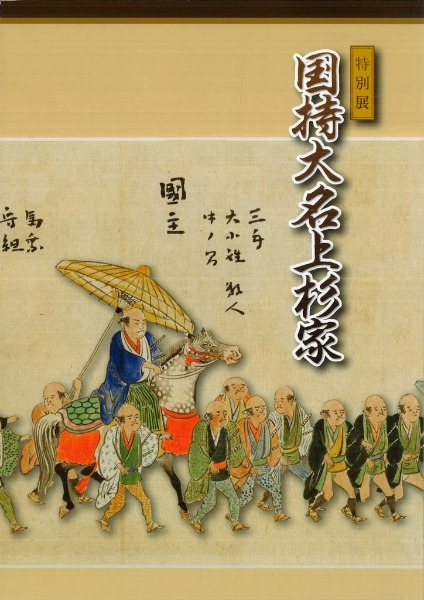 特別展
国持大名上杉家
三手
大小姓 数人
中ノ間
國主
馬乗
守組